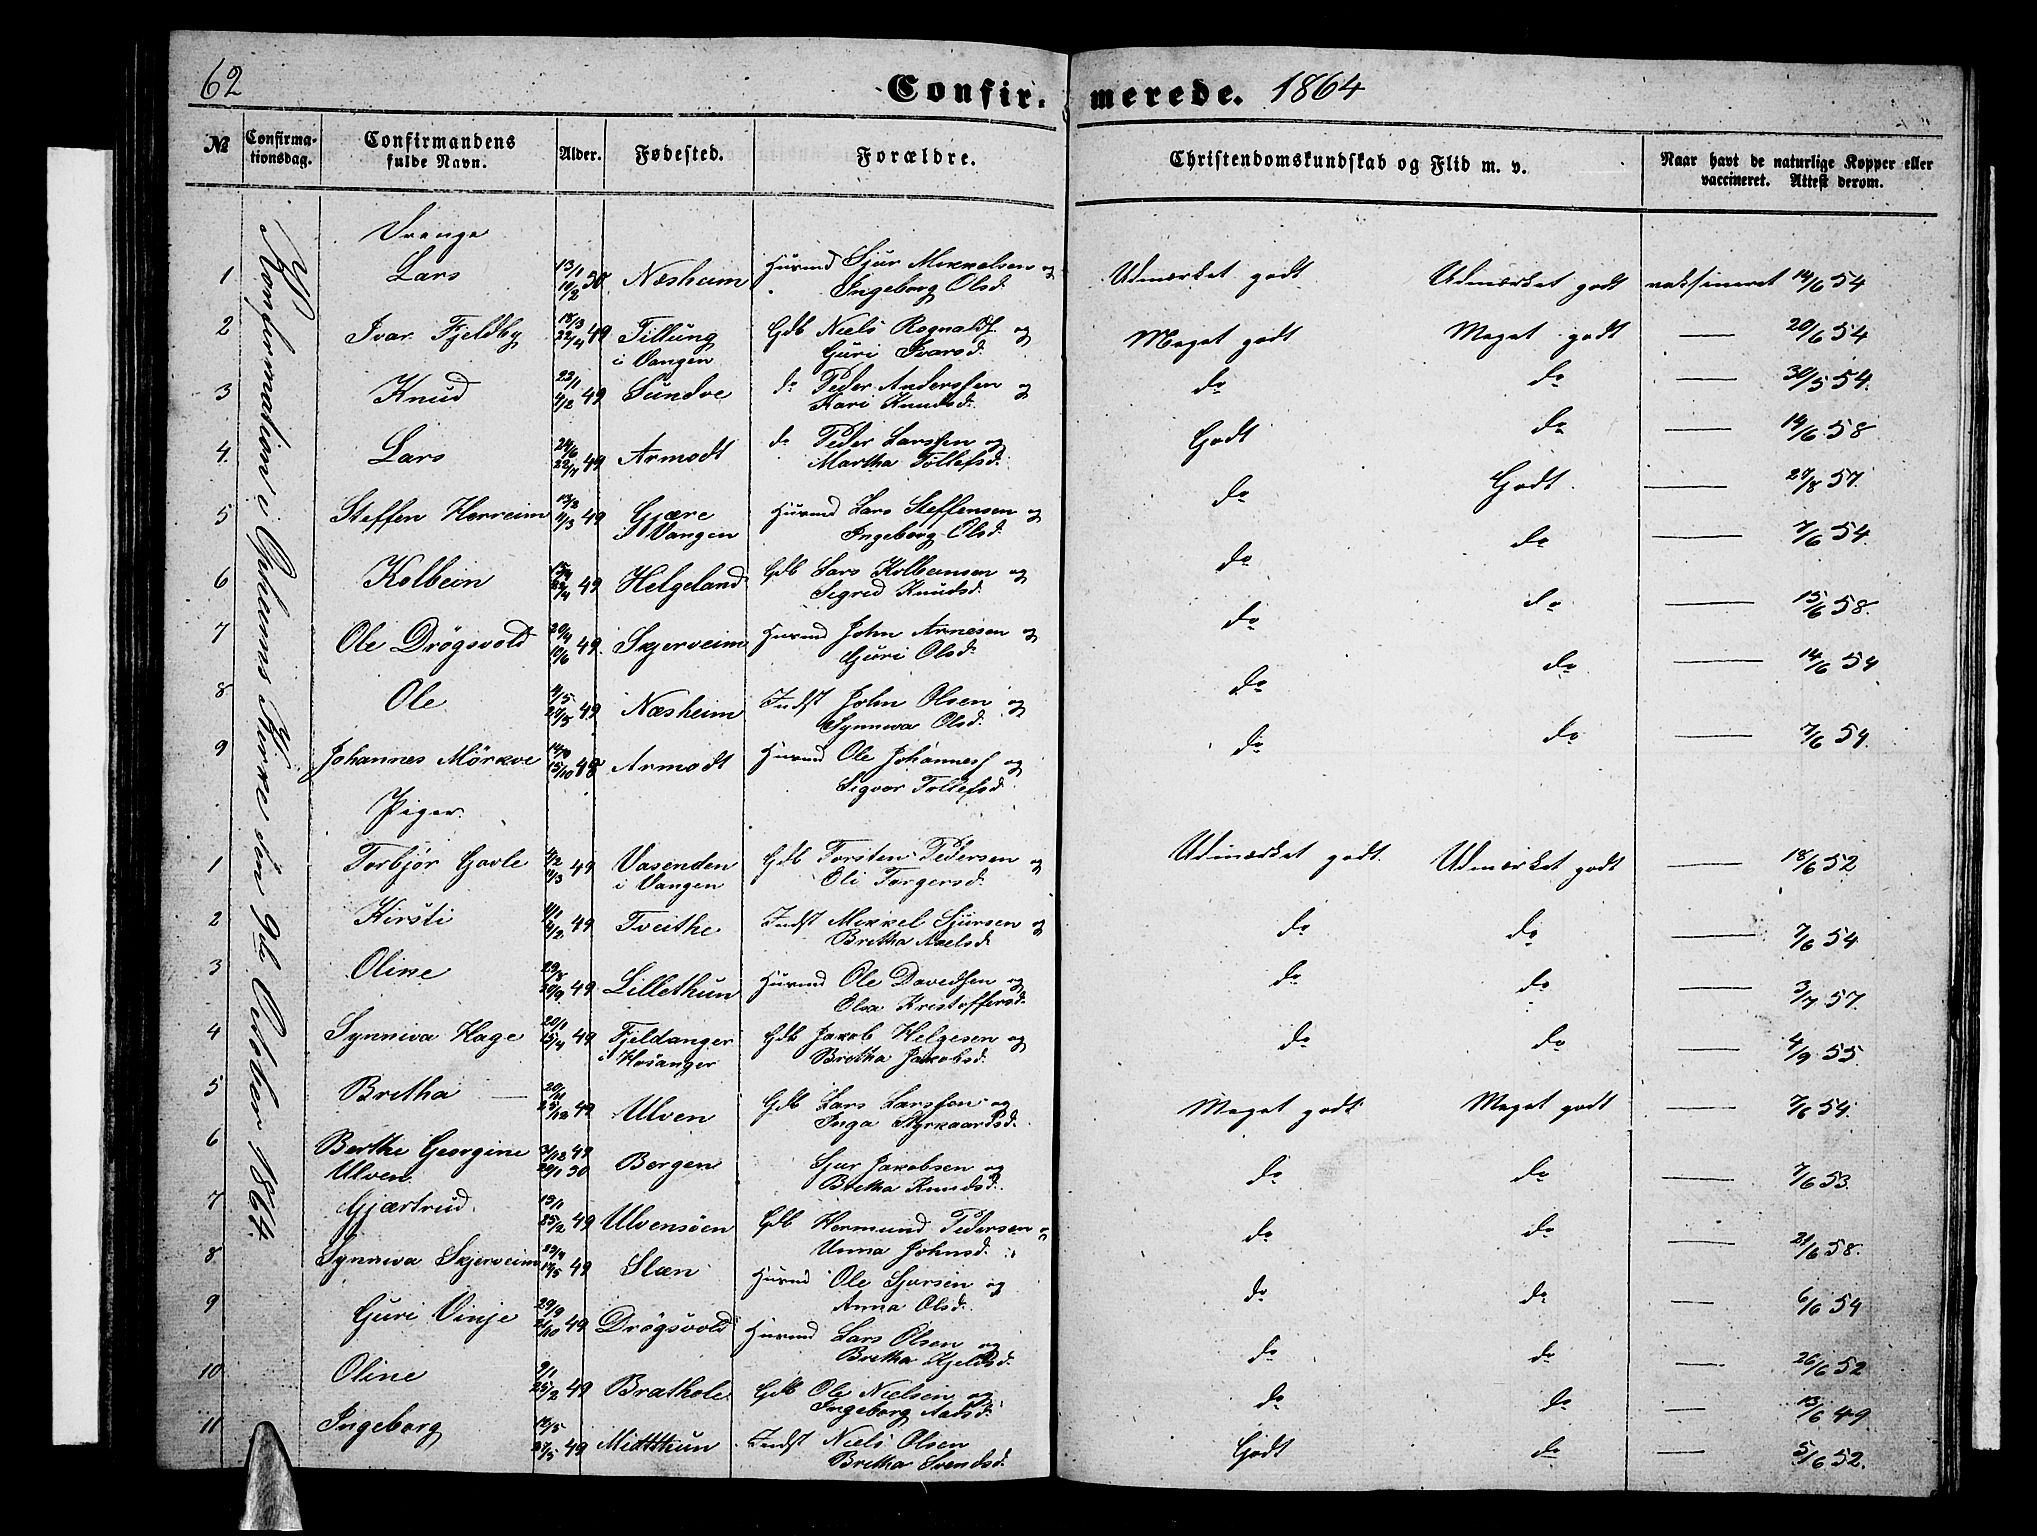 62
Confir-merede. 1864
№ Confirma-tionsdag. Confirmandens fulde Navn. Alder. Fødested. Forældre. Christendomskundskab og Flid m. v. Naar havt de naturlige Kopper eller vaccineret. Attest derom.
Konfirmation i Opheims Kirke den 9de October 1864.
Drenge
1 Lars 13/1 10/2 50 Næsheim Huusmd Sjur Mikkelsen og Ingeborg Olsd. Udmærket godt Udmærket godt vaksineret 14/6 54
2 Ivar Fjeldby 18/3 22/4 49 Tillung i Vangen Gdb Niels Rognalds. og Guri Ivarsd. Meget godt Meget godt — 20/6 54
3 Knud 23/1 4/2 49 Sundve do Peder Anderssen og Kari Knudsd. do do — 30/5 54.
4. Lars 24/6 22/7 49 Armodt do Peder Larssen og Martha Tollefsd. Godt do — 14/6 58
5 Steffen Herreim 13/2 11/3 49 Gjære i Vangen Huusmd Lars Steffensen og Ingeborg Olsd. do Godt. — 27/8 57.
6 Kolbein 49 Helgeland Gdb Lars Kolbeinsen og Sigrid Knudsd. do do — 7/6 54.
7 Ole Drøgsvold 20/4 10/6 49. Skjerveim Huusmd John Arnesen og Guri Olsd. do do — 15/6 58.
8 Ole 4/5 27/5 49 Næsheim Indst John Olsen og Synneva Olsd. do do — 14/6 54
9 Johannes Mörkve 15/10 48 Armodt Huusmd Ole Johannes. og Sigvor Tollefsd. do do — 7/6 54.
Piger.
1 Torbjør Gavle 11/3 49 Vasenden i Vangen Gdb Torsten Pedersen og Oli Torgersd. Udmærket godt. Udmærket godt — 18/6 52
2 Kirsti 4/2 49 Tveithe Indst Mikkel Sjursen og Britha Axelsd. do do — 7/6 54
3 Oline 29/8 20/9 49 Lillethun Huusmd Ole Davidsen og Olea Kristoffersd. do do — 3/7 57.
4 Synneva Hage 20/1 15/4 49 Fjeldanger i Hosanger Gdb Jakob Helgesen og Britha Jakobsd. do do — 4/9 55
5 Britha 25/12 49 Ulven Gdb Lars Larssen og Inga Styrkaardsd. Meget godt Meget godt — 7/6 54.
6 Berthe Georgine Ulven 3/12 49 20/1 50 Bergen Sjur Jakobsen og Britha Knudsd. do do — 7/6 53.
7 Gjærtrud. 13/1 25/2 49 Ulvensøen Gdb Hermund Pedersen og Unna Johnsd. do do — 21/6 58.
8. Synneva Skjerveim 49 Slæn Huusmd Ole Sjursen og Anna Olsd. do do — 6/6 54
9 Guri Vinje 29/9 21/10 49 Drøgsvold Huusmd Lars Olsen og Britha Kjeldsd. do do — 26/6 52
10 Oline 9/1 25/2 49 Brathole Gdb Ole Nielsen og Ingeborg Aadsd. do do — 13/6 49
11 Ingeborg 27/5 49 Mittthun Indst Niels Olsen Britha Svendsd. Godt do — 5/6 52.